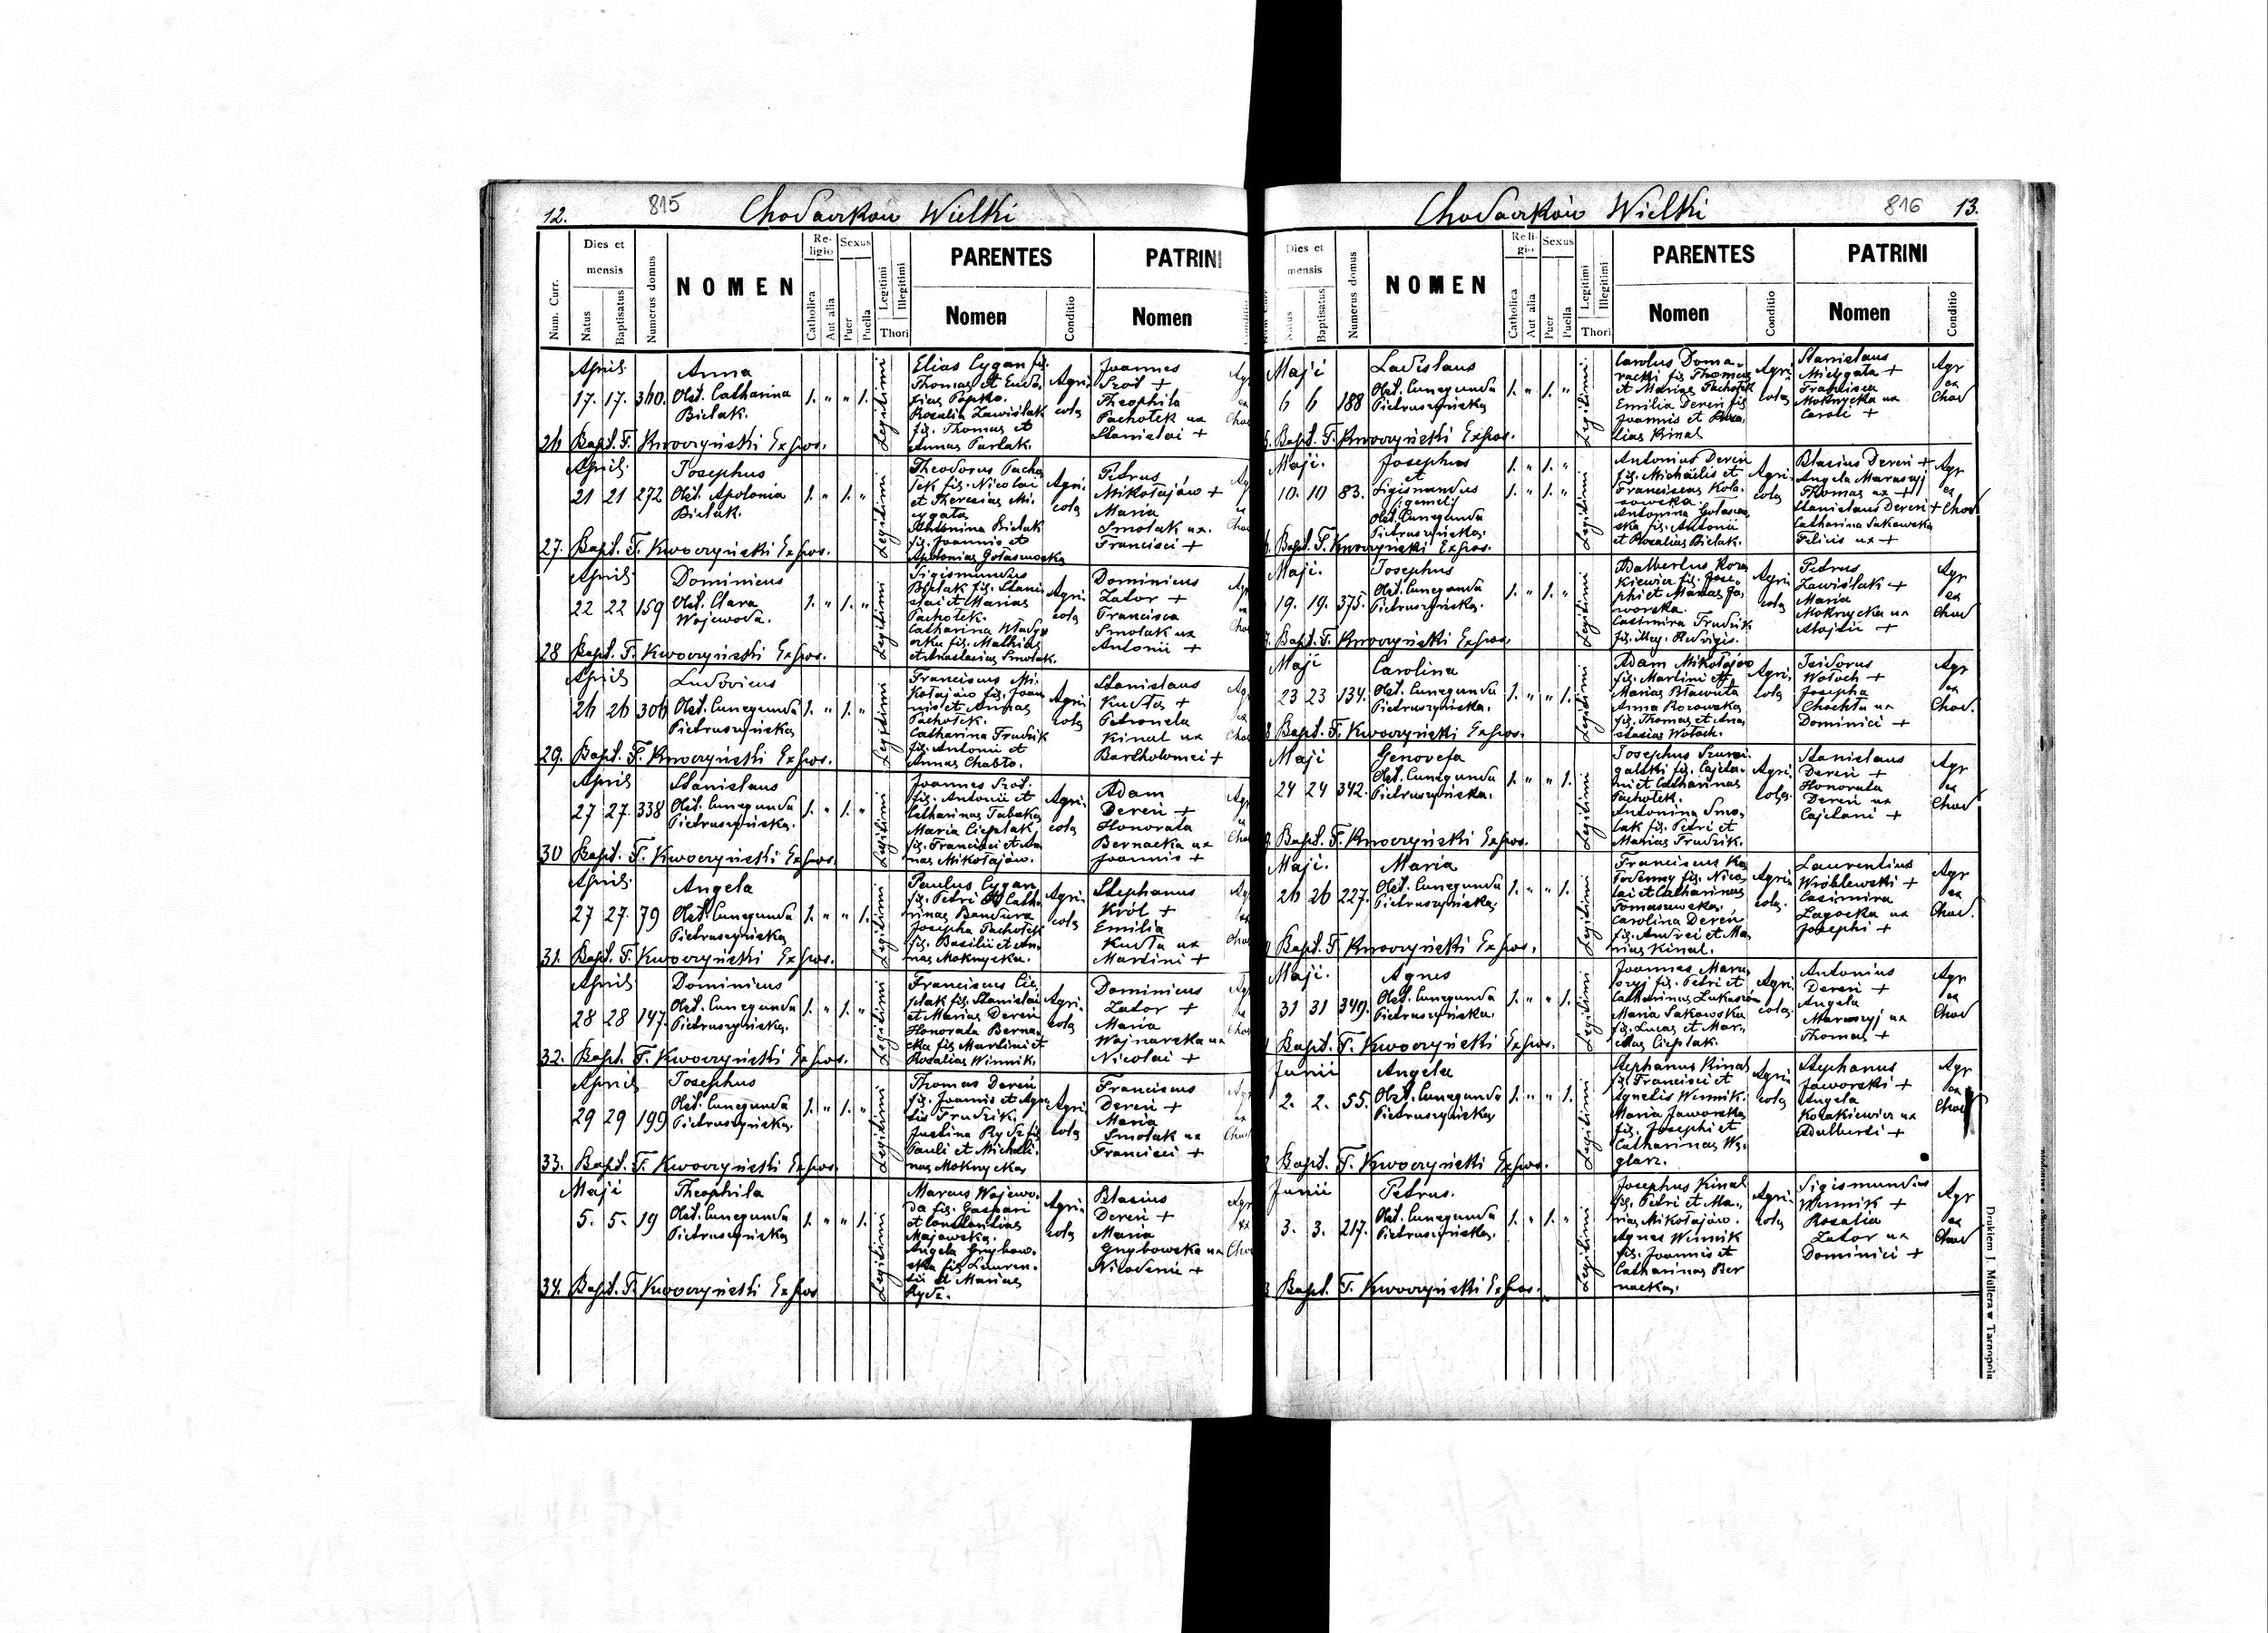 12.
815
Chodaczków Wielki
Num. Curr.
Dies et mensis
Natus
Baptisatus
Numerus domus
NOMEN
Religio
Catholica
Aut alia
Sexus
Puer
Puella
Legitimi
Illegitimi
Thori
PARENTES
Nomen
Conditio
PATRINI
Nomen
April.
17. 17. 360.
Anna
Obst. Catharina
Bielak.
1. " " 1.
Legitimi
Elias Cygan fil.
Thomas et Eudo-
Popko.
Rosalia Zawiślak
fil. Thomas et
Annae Pawlak.
Agri-
cola
Joannes
Szot +
Theophila
Pachołek ux
Stanislai +
26 Bapt. F. Kwoczyński Expos.
April.
21 21 272
Josephus
Obst. Apolonia
Bielak.
1. " 1. "
Legitimi
Theodorus Pacho
łek fil. Nicolai
et Theresiae Mi-
cygała
Antonina Bielak
fil. Joannis et
Apolonias Gołaszewska
Agri-
cola
Petrus
Mikołajów +
Maria
Smolak ux.
Francisci +
27. Bapt. F. Kwoczyński Expos.
April.
22 22 159
Dominicus
Obst. Clara
Wojewoda.
1. " 1. "
Legitimi
Sigismundus
Bielak fil. Stani-
slai et Mariae
Pachołek.
Catharina
fil. Mathiae
et Anastasiae Smolak.
Agri-
cola
Dominicus
Zator +
Francisca
Smolak ux
Antonii +
28 Bapt. F. Kwoczyński Expos.
April.
26 26 306
Ludovicus
Obst. Cunegunda
Pietruszyńska
1. " 1. "
Legitimi
Franciscus Mi-
kołajów fil. Joan
nis et Annae
Pachołek.
Catharina Frudzik
fil. Antonii et
Annae Chabło.
Agri-
cola
Stanislaus
Kudła +
Petronela
Kinal ux
Bartholomei +
29. Bapt. F. Kwoczyński Expos.
April
27 27. 338
Stanislaus
Obst. Cunegunda
Pietruszyńska.
1. " 1. "
Legitimi
Joannes Szot
fil. Antonii et
Catharinae Tabaka
Maria Cieplak
fil. Francisci et An
nae Mikołajów.
Agri-
cola
Adam
Dereń +
Honorata
Bernacka ux
Joannis +
30 Bapt. F. Kwoczyński Expos.
April.
27 27. 79
Angela
Obst. Cunegunda
Pietruszyńska
1. " " 1.
Legitimi
Paulus Cygan
fil. Petri et Catha
rinae Bandura
Josepha Pachołek
fil. Basilii et An-
nae Mokrzycka.
Agri-
cola
Stephanus
Król +
Emilia
Kudła ux
Martini +
31. Bapt. F. Kwoczyński Expos.
April
28 28 147.
Dominicus
Obst. Cunegunda
Pietruszyńska.
1. " 1. "
Legitimi
Franciscus Cie-
plak fil. Stanislai
et Mariae Dereń
Honorata Berna-
cka fil. Martini et
Rosaliae Winnik.
Agri-
cola
Dominicus
Zator +
Maria
Wojnarska ux
Nicolai +
32. Bapt. F. Kwoczyński Expos.
April
29 29 199
Josephus
Obst. Cunegunda
Pietruszyńska.
1. " 1. "
Legitimi
Thomas Dereń
fil. Joannis et Agne
tis Frudzik.
Justina Rydz fil.
Pauli et Michali-
nae Mokrzycka
Agri-
cola
Franciscus
Dereń +
Maria
Smolak ux
Francisci +
33. Bapt. F. Kwoczyński Expos.
Maji
5. 5. 19
Theophila
Obst. Cunegunda
Pietruszyńska
1. " " 1.
Legitimi
Marcus Wojewo-
da fil. Gaspari
et Constantiae
Majewska.
Angela Grzybow-
ska fil. Lauren-
tii et Mariae
Rydz.
Agri-
cola
Blasius
Dereń +
Maria
Grzybowska ux
Nicodemi +
34. Bapt. F. Kwoczyński Expos
Chodaczków Wielki
816
13.
Dies et mensis
Natus
Baptisatus
Numerus domus
NOMEN
Religio
Catholica
Aut alia
Sexus
Puer
Puella
Legitimi
Illegitimi
Thori
PARENTES
Nomen
Conditio
PATRINI
Nomen
Conditio
Maji
6 6 188
Ladislaus
Obst. Cunegunda
Pietruszyńska
1. " 1. "
Legitimi
Carolus Doma-
racki fil. Thomas
et Mariae Pachołek
Emilia Dereń fil.
Joannis et Rosa
liae Kinal
Agri-
cola
Stanislaus
Micygała +
Francisca
Mokrzycka ux
Caroli +
Agr
ex
Chod
Bapt. F. Kwoczyński Expos.
Maji.
10. 10 83.
Josephus
et
Sigismundus
(gemeli)
Obst. Cunegunda
Pietruszyńska.
1. " 1. "
1. " 1. "
Legitimi
Antonius Dereń
fil. Michaelis et
Franciscae Koło-
sowska.
Antonina Gołaszew
ska fil. Antonii
et Rosaliae Bielak.
Agri-
cola
Blasius Dereń +
Angela Maruszyj
Thomas ux +
Stanislaus Dereń +
Catharina Sakowska
Felicis ux +
Agr
ex
Chod
Bapt. F. Kwoczyński Expos.
Maji.
19. 19. 375.
Josephus
Obst. Cunegunda
Pietruszyńska.
1. " 1. "
Legitimi
Adalbertus Koza
kiewicz fil. Jose-
phi et Mariae Ja-
worska.
Casimira Frudzik
fil. Hedvigis.
Agri-
cola
Petrus
Zawiślak +
Maria
Mokrzycka ux
Alojzii +
Agr
ex
Chod
Bapt. F. Kwoczyński Expos.
Maji
23 23 134.
Carolina
Obst. Cunegunda
Pietruszyńska.
1. " " 1.
Legitimi
Adam Mikołajów
fil. Martini et
Mariae Bławuta
Anna Rozowska
fil. Thomas et Ana
stasiae Wołoch.
Agri-
cola
Isidorus
Wołoch +
Josepha
Chochła ux
Dominici +
Agr
ex
Chod.
Bapt. F. Kwoczyński Expos.
Maji
24 24 342.
Genovefa
Obst. Cunegunda
Pietruszyńska.
1. " " 1.
Legitimi
Josephus
galski fil. Cajeta-
ni et Catharinae
Pachołek.
Antonina Smo-
lak fil. Petri et
Mariae Frudzik.
Agri-
cola.
Stanislaus
Dereń +
Honorata
Dereń ux
Cajetani +
Agr
ex
Chod
Bapt. F. Kwoczyński Expos.
Maji.
26 26 227.
Maria
Obst. Cunegunda
Pietruszyńska.
1. " " 1.
Legitimi
Franciscus Ka
fil. Nico-
lai et Catharinae
Tomaszewska.
Carolina Dereń
fil. Andrei et Ma
riae Kinal.
Agri-
cola.
Laurentius
Wróblewski +
Casimira
Zagocka ux
Josephi +
Agr
ex
Chod.
Bapt. F. Kwoczyński Expos.
Maji.
31 31 349.
Agnes
Obst. Cunegunda
Pietruszyńska.
1. " " 1.
Legitimi
Joannes Maru-
szyj fil. Petri et
Catharinae Lukasiów
Maria Sakowska
fil. Lucas et Mar-
Cieplak.
Agri-
cola.
Antonius
Dereń +
Angela
Maruszyj ux
Thomas +
Agr
ex
Chod
Bapt. F. Kwoczyński Expos.
Junii
2. 2. 55.
Angela
Obst. Cunegunda
Pietruszyńska
1. " " 1.
Legitimi
Stephanus Kinal
fil. Francisci et
Agnetis Winnik.
Maria Jaworska
fil. Josephi et
Catharinae Wę-
glarz.
Agri-
cola
Stephanus
Jaworski +
Angela
Kozakiewicz ux
Adalberti +
Agr
ex
Chod
Bapt. F. Kwoczyński Expos.
Junii
3. 3. 217.
Petrus.
Obst. Cunegunda
Pietruszyńska.
1. " 1. "
Legitimi
Josephus Kinal
fil. Petri et Ma-
riae Mikołajów.
Agnes Winnik
fil. Joannis et
Catharinae Ber
nacka.
Agri-
cola
Sigismundus
Winnik +
Rosalia
Zator ux
Dominici +
Agr
ex
Chod
Bapt. F. Kwoczyński Expos.
Drukiem J. Mullera w Tarnopolu